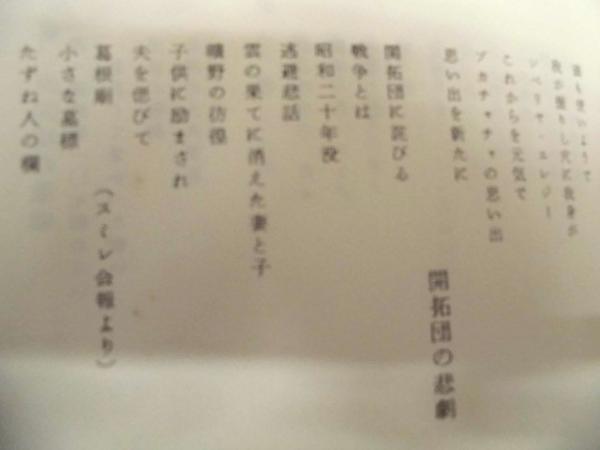 我が掘りし穴に我身が
シベリヤ・エレジー
これからを元気で
ブカチャチャの思い出
思い出を新たに
開拓団の悲劇
開拓団に詫びる
戦争とは
昭和二十年没
逃避悲話
雲の果てに消えた妻と子
曠野の彷徨
子供に励まされ
夫を偲びて
葛根廟
(スミレ会報より)
小さな墓標
たずね人の欄